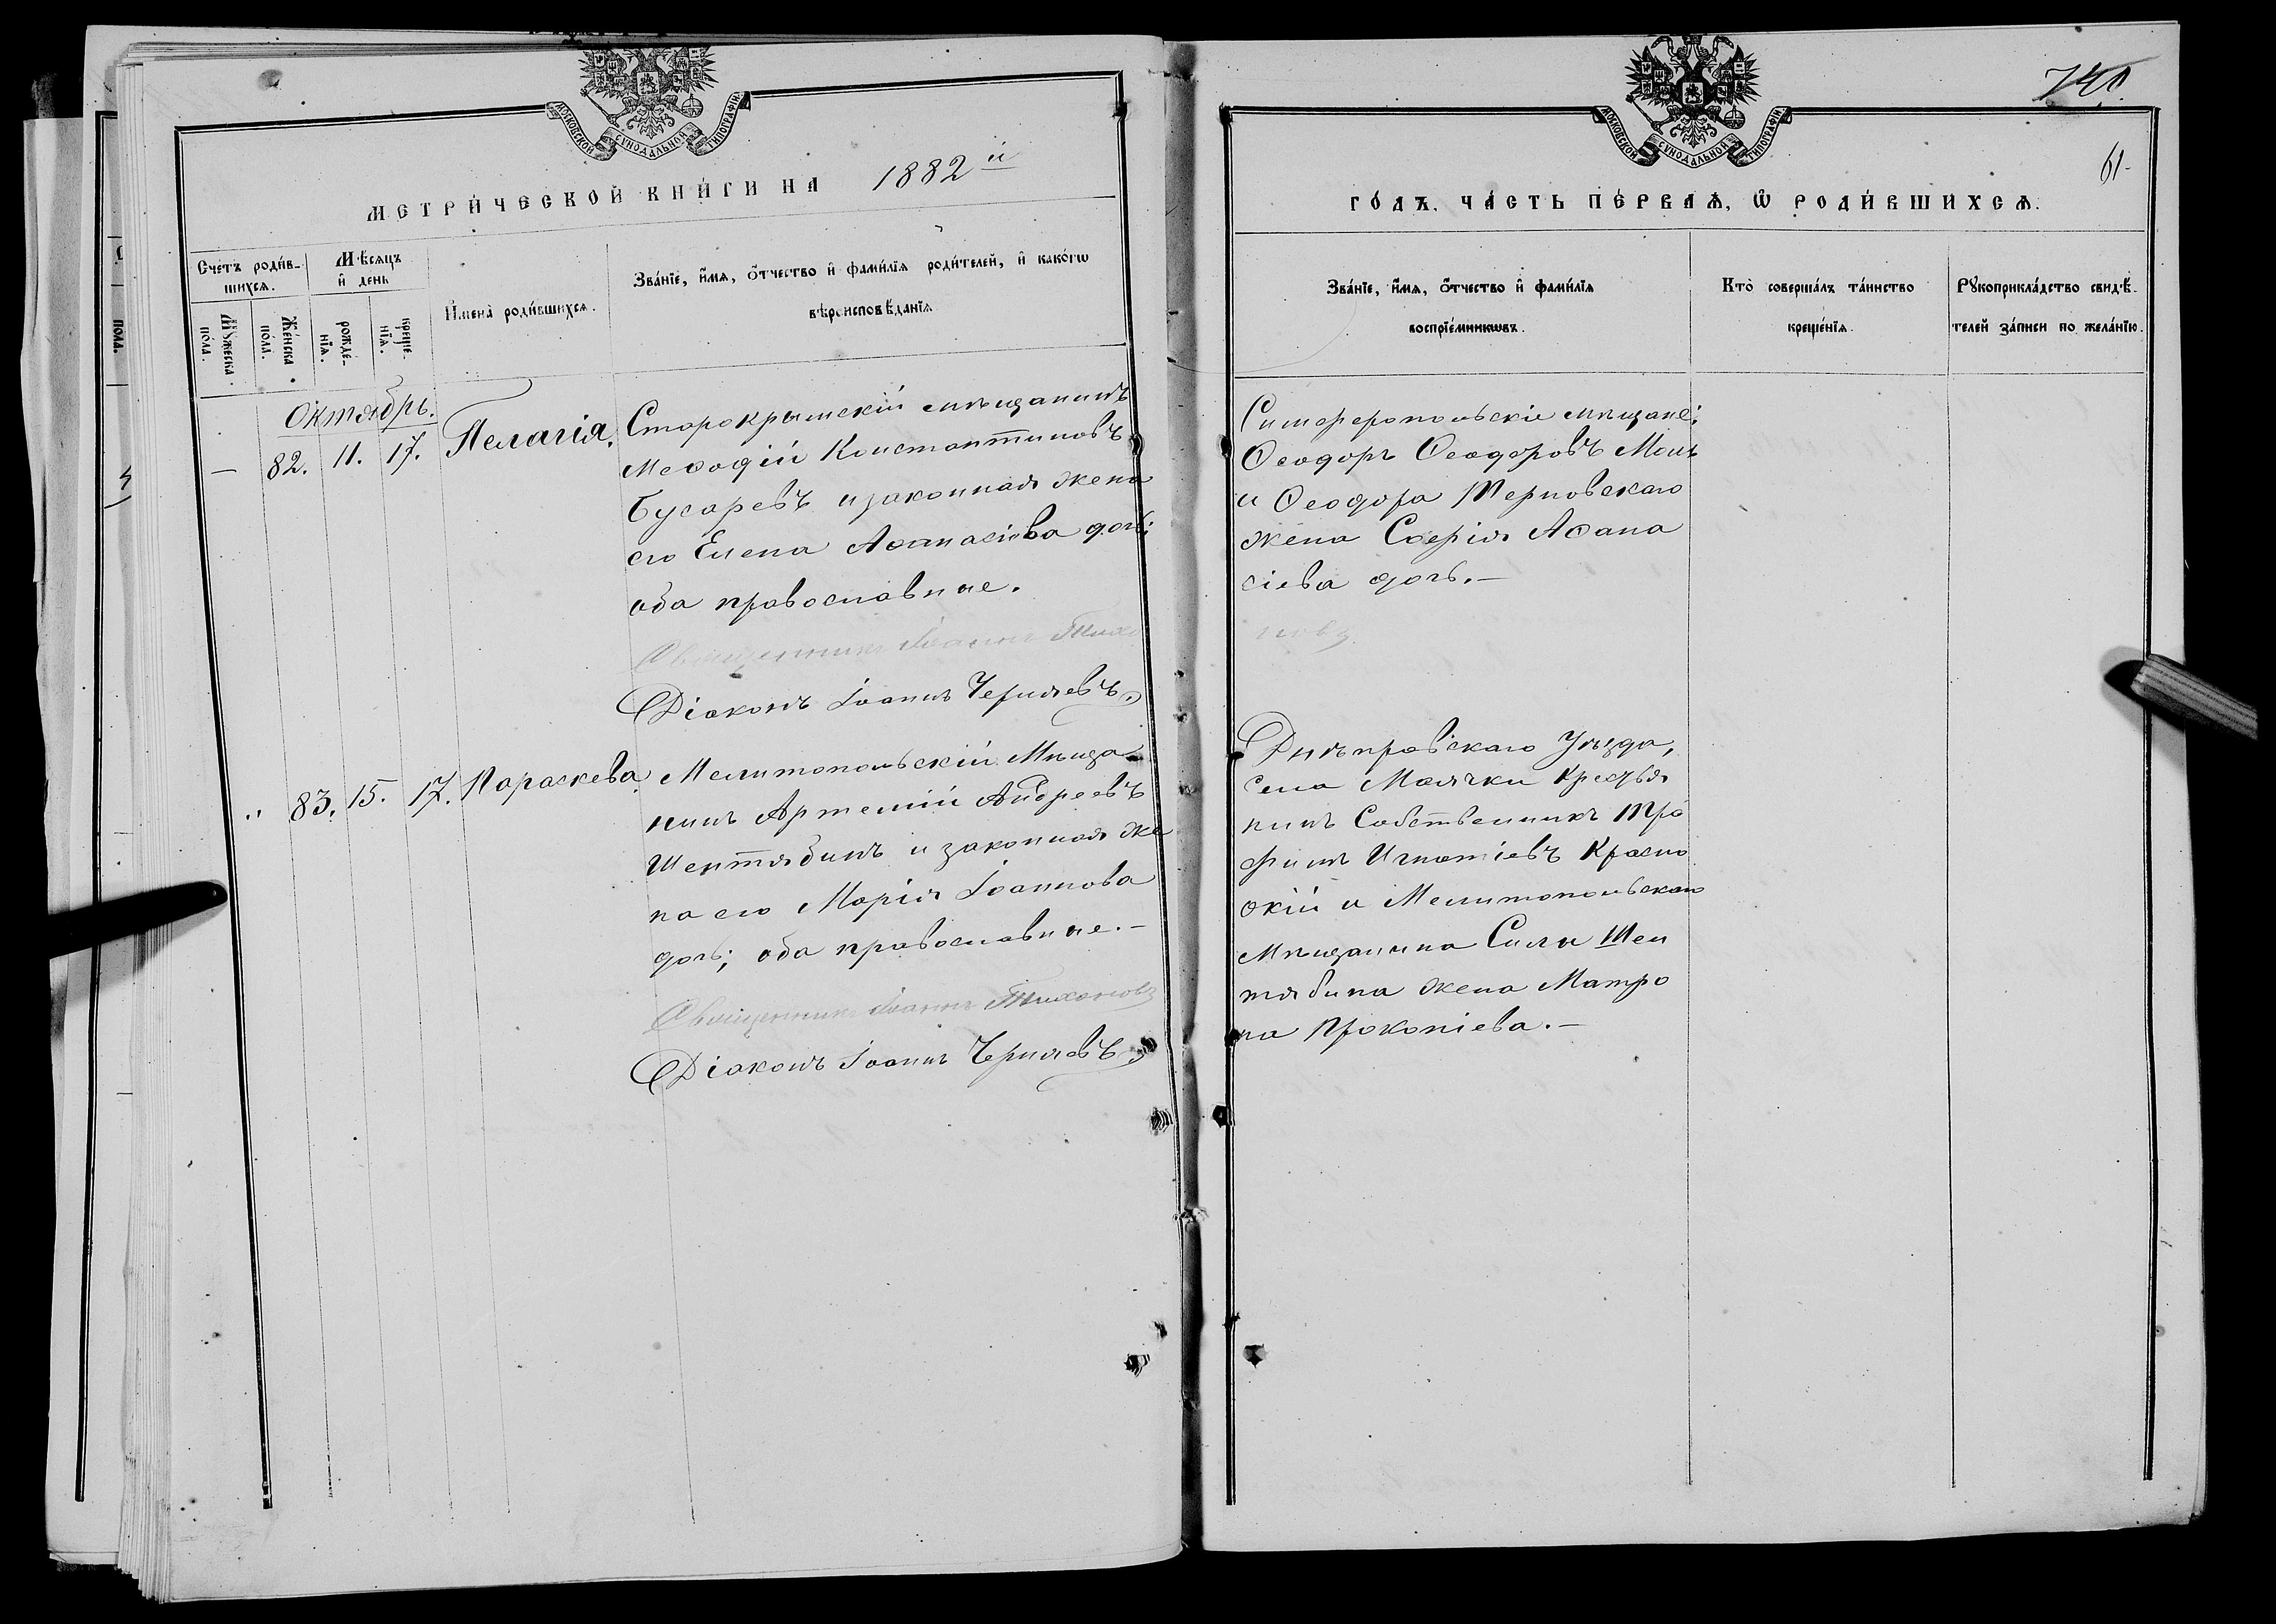 МОСКОВСКОЙ СѴНОДАЛЬНОЙ ТИПОГРАФІИ
МЕТРИ́ЧЕСКОЙ КНИ́ГИ НА 1882й
Сче́тъ роди́в-
шихсѧ.
Мѣсяцъ
и҆ день
Мꙋ́жеска
по́ла.
Же́нска
по́ла.
рожде-
нїѧ.
креще
нїѧ.
И҆мена̀ роди́вшихсѧ.
Зва́нїе, и҆́мѧ, ѻ҆́тчество и҆ фами́лїѧ роди́телей, и҆ како́гѡ
вѣроисповѣ́данїѧ
Октябрь.
— 82. 11. 17. Пелагія.
Старокрымскій мѣщанинъ
Меѳодій Константиновъ
Бусаревъ и законная жена
его Елена Аѳанасіева дочь;
оба православные.
Священникъ Іоаннъ Тихо
Діаконъ Іоаннъ Чернявъ
„ 83. 15. 17. Параскева
Мелитопольскій Мѣща-
нинъ Артемій Андреевъ
Шептябинъ и законная же
на его Марія Іоаннова
дочь; оба православные.—
Священникъ Іоаннъ Тихоновъ
Діаконъ Іоаннъ Чернявъ
МОСКОВСКОЙ СѴНОДАЛЬНОЙ ТИПОГРАФІИ
61.
ГО́ДЪ. ЧА́СТЬ ПЕ́РВАѦ, Ѡ҆ РОДИ́ВШИХСѦ.
Зва́нїе, и҆́мѧ, ѻ҆́тчество и҆ фами́лїѧ
воспрїе́мникѡвъ.
Кто̀ соверша́лъ та́инство
креще́нїѧ.
Рꙋкоприкла́дство свидѣ́-
телей за́писи по жела́нїю.
Симферопольскіе мѣщане:
Ѳеодоръ Ѳеодоровъ
и Ѳеодора Терновскаго
жена Софія Аѳана
сіева дочь.—
новъ
Днѣпровскаго Уѣзда,
села Маячки Крестья
нинъ Собственникъ Тро
фимъ Игнатіевъ Красно
окій и Мелитопольскаго
Мѣщанина Силы Шеп
тябина жена Матро
на Прокопіева.—